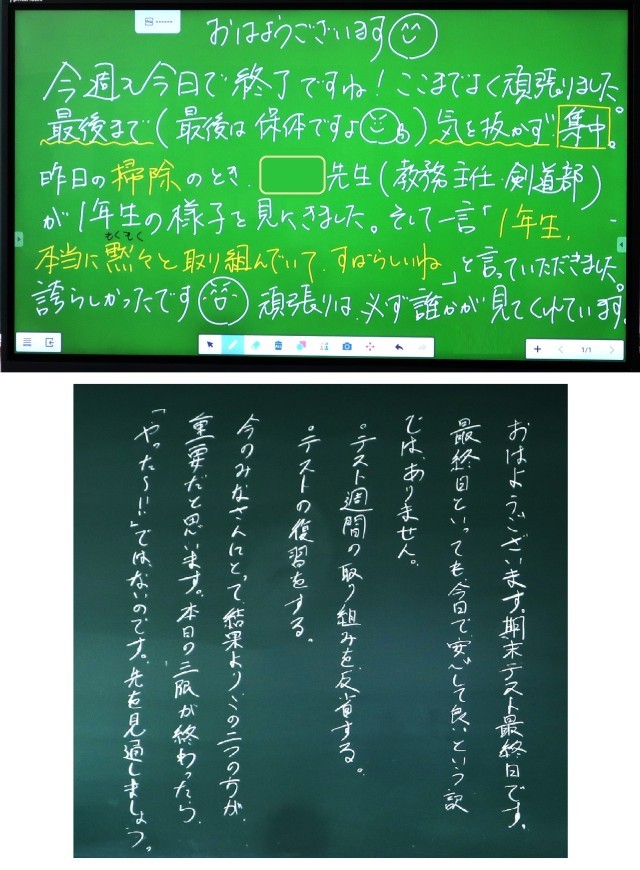 おはようございます
今週も今日で終了ですね！ここまでよく頑張りました。
最後まで(最後は保体ですよ)気を抜かず集中。
昨日の掃除のとき、　　　先生(教務主任・剣道部)
が1年生の様子を見にきました。そして一言「1年生、
もくもく
本当に黙々と取り組んでいて、すばらしいね」と言っていただきました。
誇らしかったです 頑張りは、必ず誰かが見てくれています。
1/1
おはようございます。期末テスト最終日です。
最終日といっても、今日で安心して良いという訳
では、ありません。
。テスト週間の取り組みを反省する。
。テストの復習をする。
今のみなさんにとって結果よりこの二つの方が、
重要だと思います。本日の三限が終わったら、
「やった〜!!」ではないのです。先を見通しましょう。